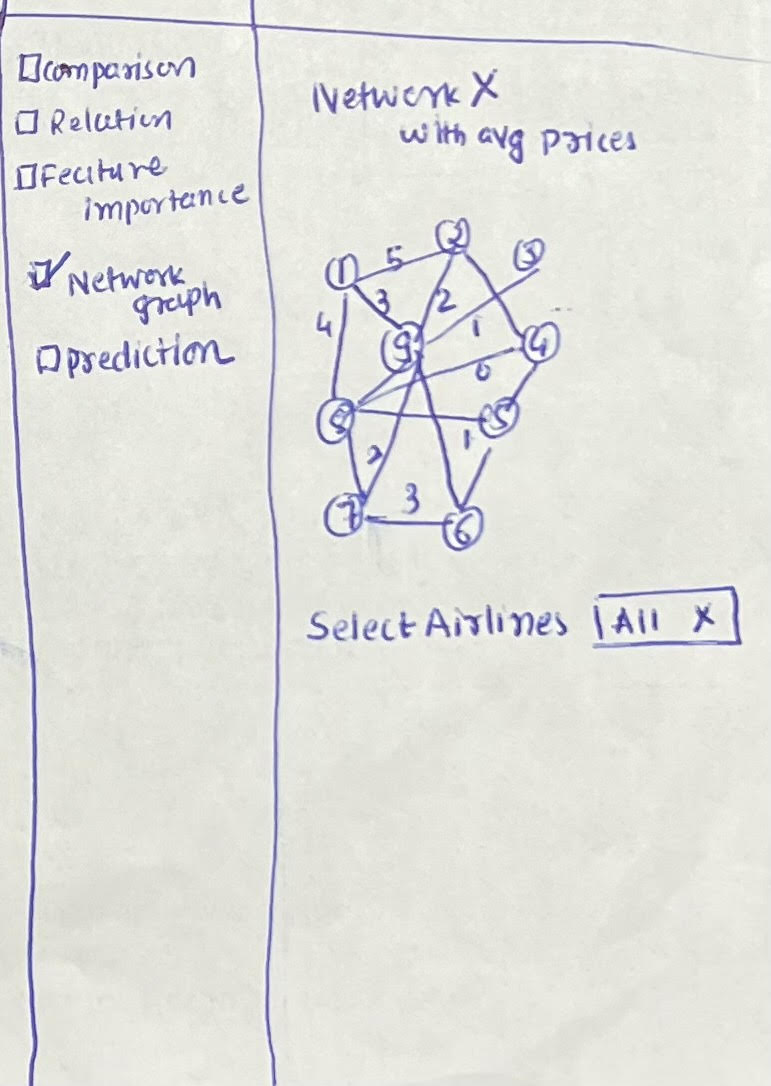 comparison
Relation
Feature
importance
Network
graph
prediction
Network X
with avg prices
1
5
2
3
3
2
4
1
9
4
0
8
5
1
2
3
7
6
Select Airlines All X